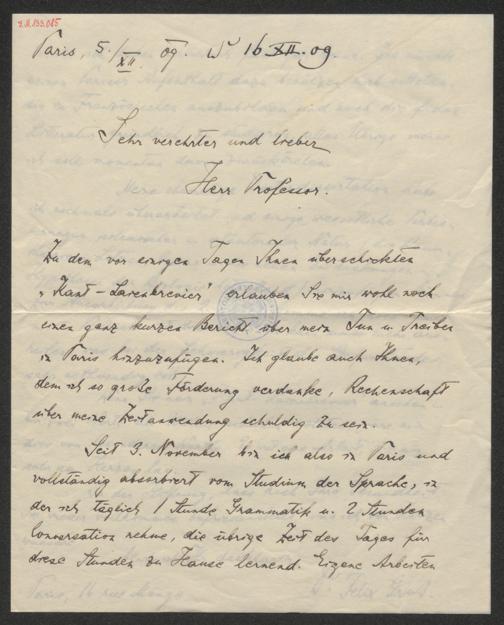 I.N. 133.015
Paris, 5./XII 09. W 16 XII. 09.
Sehr verehrter und lieber
Herr Professor.
Zu dem vor einigen Tagen Ihnen überschickten
„Kant-Laienbrevier" erlauben Sie mir wohl noch
einen ganz kurzen Bericht über mein Tun u. Treiben
in Paris hinzuzufügen. Ich glaube auch Ihnen,
dem ich so große Förderung verdanke, Rechenschaft
über meine Zeitanwendung schuldig zu sein.
Seit 3. November bin ich also in Paris und
vollständig absorbiert vom Studium der Sprache, in
der ich täglich 1 Stunde Grammatik u. 2 Stunden
Conversation nehme, die übrige Zeit des Tages für
diese Stunden zu Hause lernend. Eigene Arbeiten